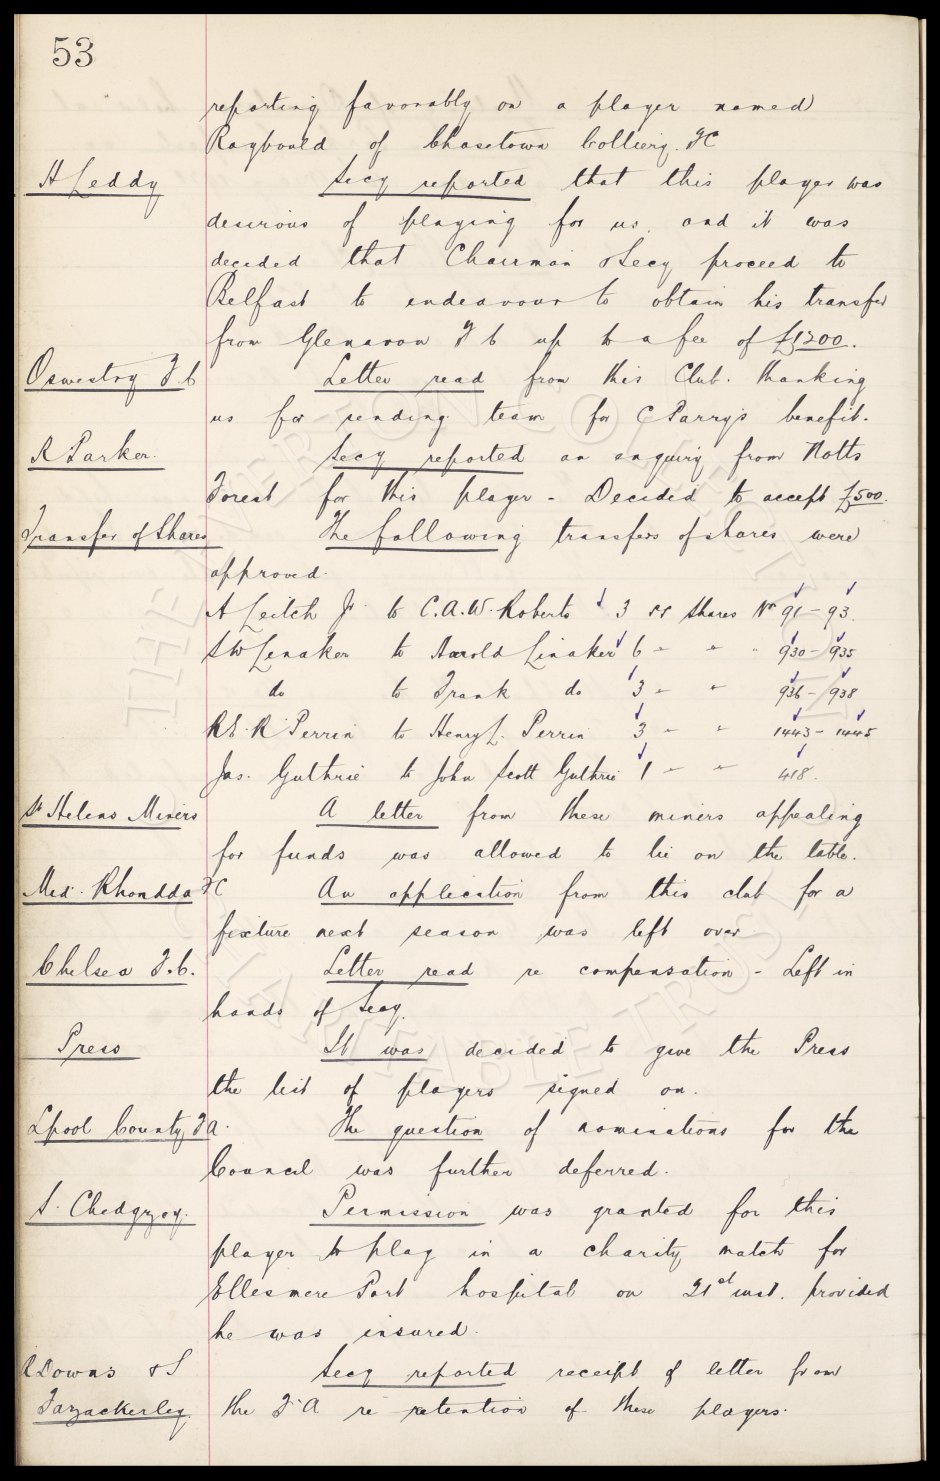 53
reporting favorably on a player named
Raybould of Chasetown Colliery. FC
H Leddy Secy reported that this player was
desirous of playing for us, and it was
decided that Chairman & Secy proceed to
Belfast to endeavour to obtain his transfer
from Glenavon F C up to a fee of £1200.
Oswestry F.C Letter read from this Club. thanking
us for sending team for C Parry's benefit.
R Parker. Secy reported an enquiry from Notts
Forest for this player - Decided to accept £500.
Transfer of Shares The following transfers of shares were
approved.
A Leitch Jr. to C.A.W. Roberts 3 shares No 91 - 93.
S W Linaker to Harold Linaker 6 " " " 930 - 935
do to Frank do 3 " " 936 - 938
R E. R Perrin to Henry L. Perrin 3 " " 1443 - 1445
Jas. Guthrie to John Scott Guthrie 1 " " 418.
St Helens Miners A letter from these miners appealing
for funds was allowed to lie on the table.
Mid. Rhondda FC An application from this club for a
fixture next season was left over
Chelsea F.C. Letter read re compensation - Left in
hands of Secy.
Press It was decided to give the Press
the list of players signed on.
Lpool County F A. The question of nominations for the
Council was further deferred.
S. Chedgzoy. Permission was granted for this
player to play in a charity match for
Ellesmere Port hospital on 21st inst. provided
he was insured.
R Downs & S Secy reported receipt of letter from
Fazackerley the F.A re retention of these players.
THE EVERTON COLLECTION
CHARITABLE TRUST